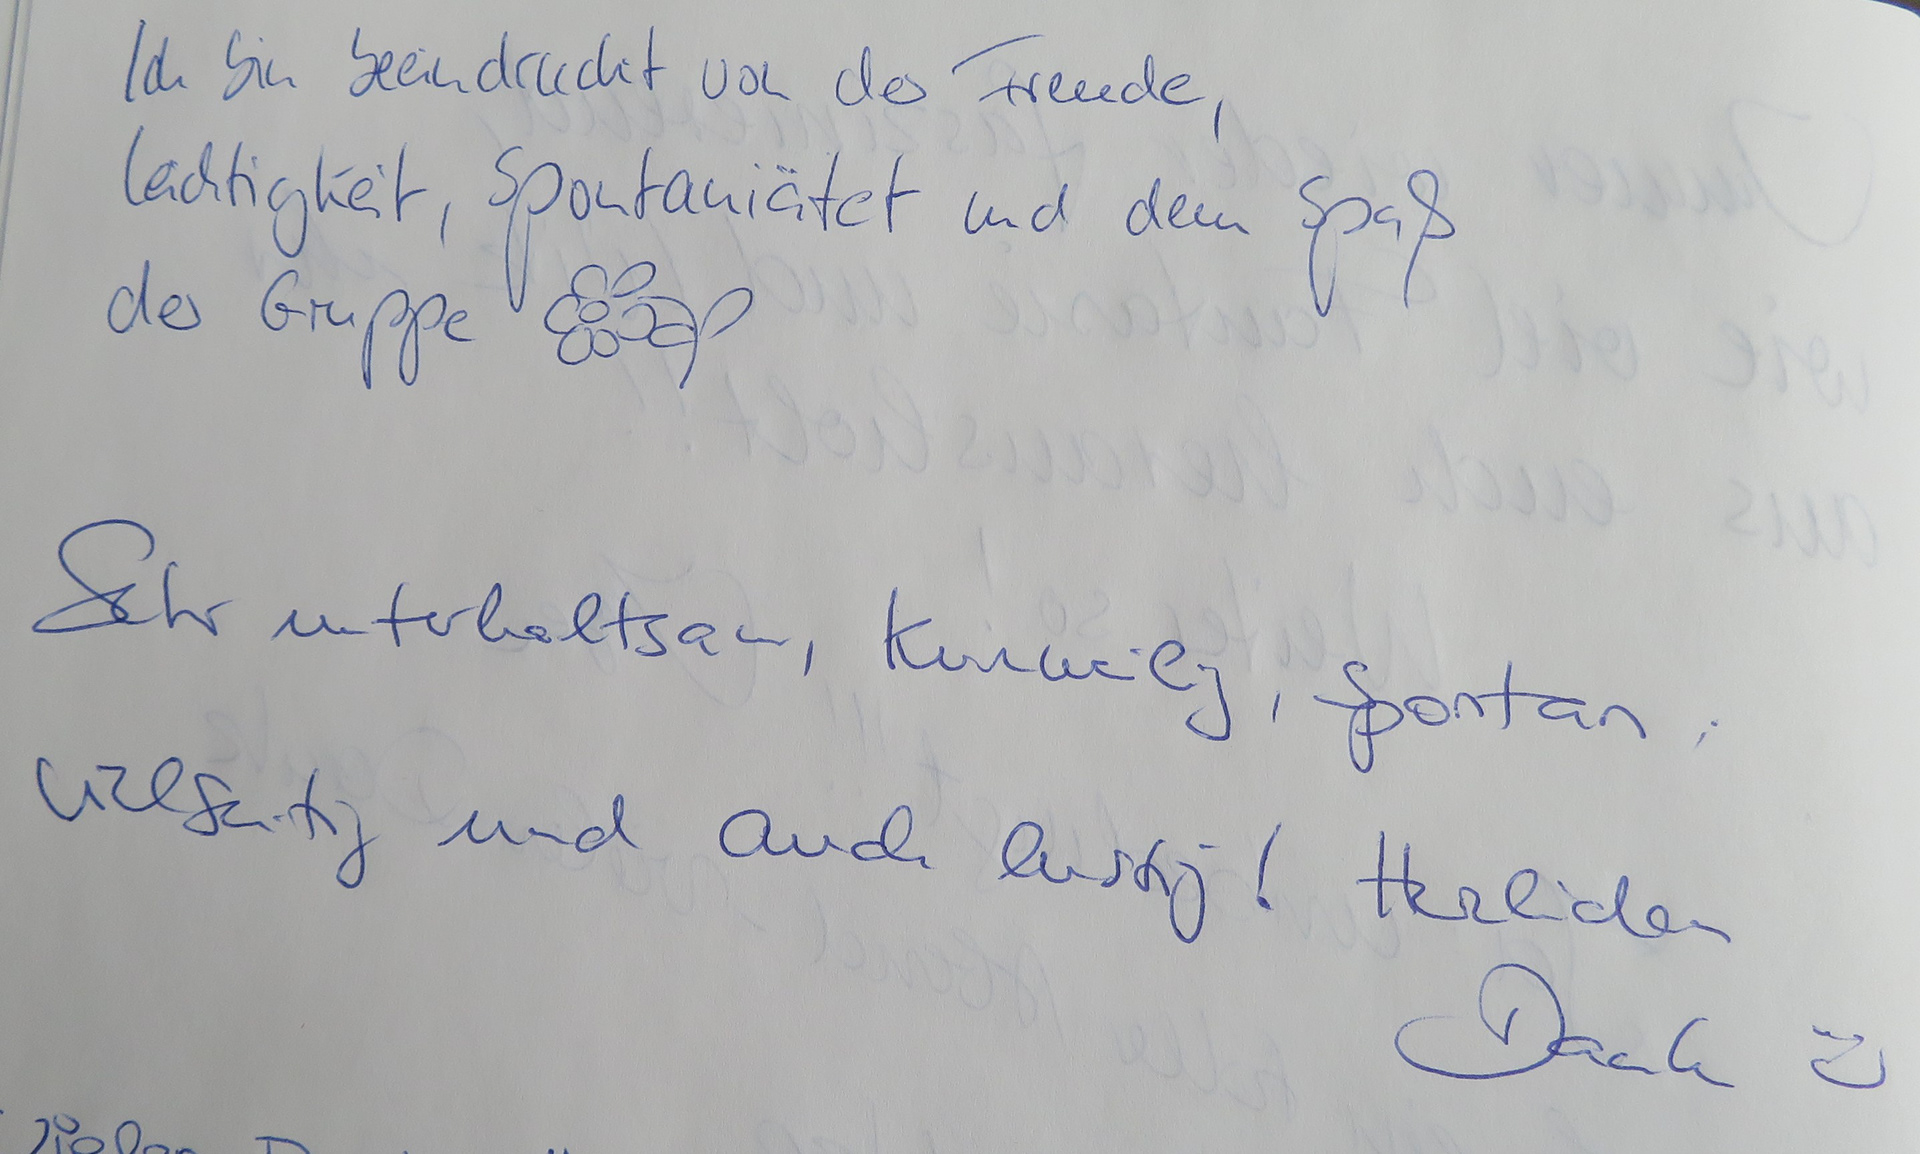 Ich bin beeindruckt von der Freude,
Leichtigkeit, Spontaniätet und dem Spaß
der Gruppe
Sehr unterhaltsam, kurzweilig, spontan,
vielseitig und auch lustig! Herzlichen
Dank
Vielen